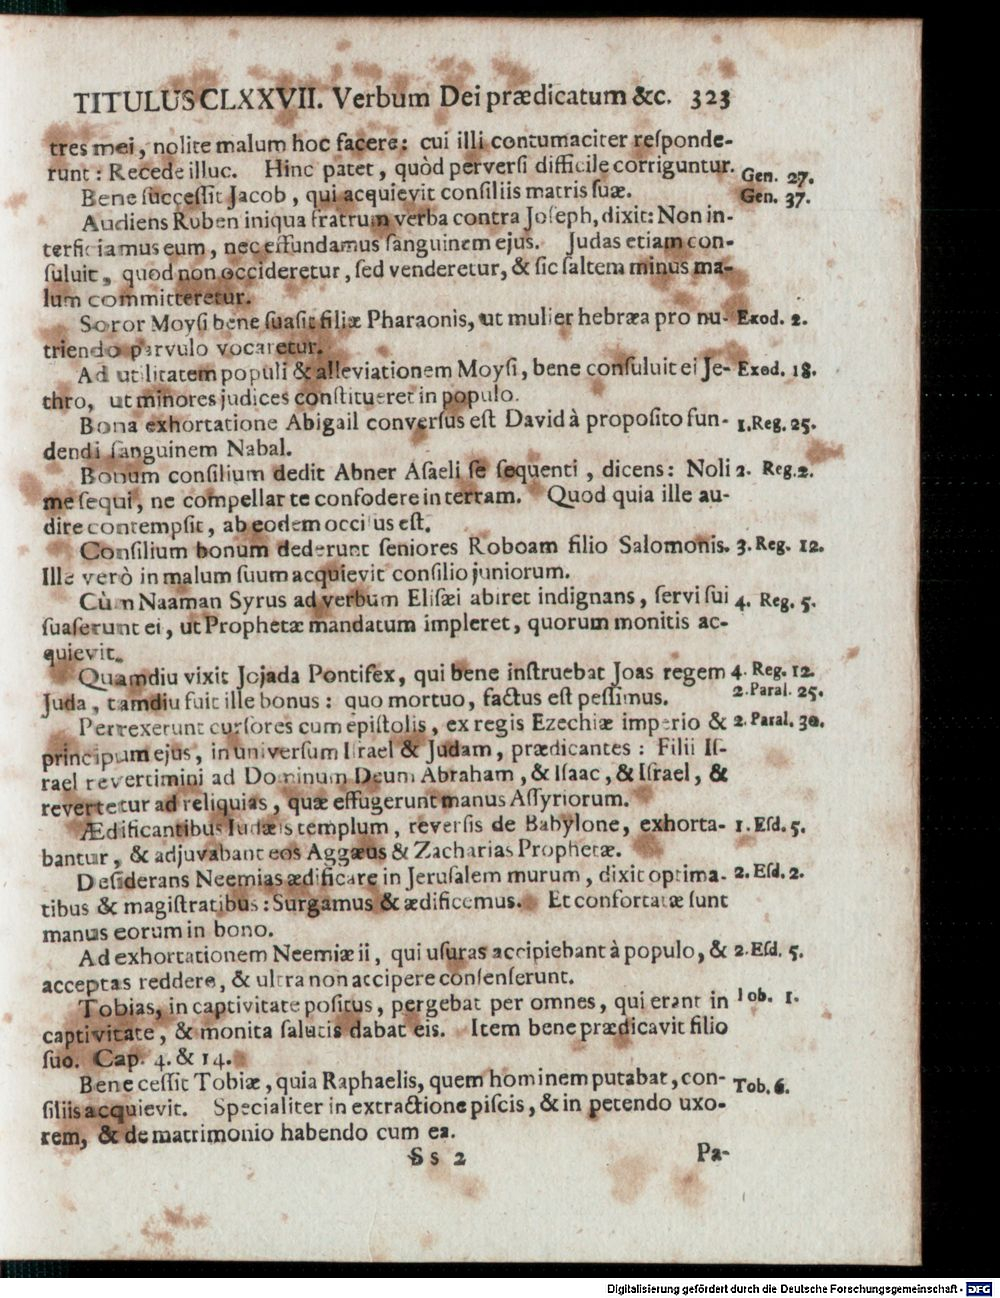 TITULUS CLXXVII. Verbum Dei prædicatum &c. 323
tres mei, nolite malum hoc facere: cui illi contumaciter reſponde-
runt: Recede illuc. Hinc patet, quòd perverſi difficile corriguntur.
Bene ſucceſſit Jacob, qui acquievit conſiliis matris ſuæ. Gen. 27.
Audiens Ruben iniqua fratrum verba contra Joſeph, dixit: Non in- Gen. 37.
terficiamus eum, nec effundamus ſanguinem ejus. Judas etiam con-
ſuluit, quod non occideretur, ſed venderetur, & ſic ſaltem minus ma-
lum committeretur.
Soror Moyſi bene ſuaſit filiæ Pharaonis, ut mulier hebræa pro nu- Exod. 2.
triendo parvulo vocaretur.
Ad utilitatem populi & alleviationem Moyſi, bene conſuluit ei Je- Exod. 18.
thro, ut minores judices conſtitueret in populo.
Bona exhortatione Abigail converſus eſt David à propoſito fun- 1. Reg. 25.
dendi ſanguinem Nabal.
Bonum conſilium dedit Abner Aſaeli ſe ſequenti, dicens: Noli 2. Reg. 2.
me ſequi, ne compellar te confodere in terram. Quod quia ille au-
dire contempſit, ab eodem occiſus eſt.
Conſilium bonum dederunt ſeniores Roboam filio Salomonis. 3. Reg. 12.
Ille verò in malum ſuum acquievit conſilio juniorum.
Cùm Naaman Syrus ad verbum Eliſæi abiret indignans, ſervi ſui 4. Reg. 5.
ſuaſerunt ei, ut Prophetæ mandatum impleret, quorum monitis ac-
quievit.
Quamdiu vixit Jojada Pontifex, qui bene inſtruebat Joas regem 4. Reg. 12.
Juda, tamdiu fuit ille bonus: quo mortuo, factus eſt peſſimus. 2. Paral. 25.
Perrexerunt curſores cum epiſtolis, ex regis Ezechiæ imperio & 2. Paral. 30.
principum ejus, in univerſum Iſrael & Judam, prædicantes: Filii Iſ-
rael revertimini ad Dominum Deum Abraham, & Iſaac, & Iſrael, &
revertetur ad reliquias, quæ effugerunt manus Aſſyriorum.
Ædificantibus Judæis templum, reverſis de Babylone, exhorta- 1. Eſd. 5.
bantur, & adjuvabant eos Aggæus & Zacharias Prophetæ.
Deſiderans Neemias ædificare in Jeruſalem murum, dixit optima- 2. Eſd. 2.
tibus & magiſtratibus: Surgamus & ædificemus. Et confortatæ ſunt
manus eorum in bono.
Ad exhortationem Neemiæ ii, qui uſuras accipiebant à populo, & 2. Eſd. 5.
acceptas reddere, & ultra non accipere conſenſerunt.
Tobias, in captivitate poſitus, pergebat per omnes, qui erant in Tob. 1.
captivitate, & monita ſalutis dabat eis. Item bene prædicavit filio
ſuo. Cap. 4. & 14.
Bene ceſſit Tobiæ, quia Raphaelis, quem hominem putabat, con- Tob. 6.
ſiliis acquievit. Specialiter in extractione piſcis, & in petendo uxo-
rem, & de matrimonio habendo cum ea.
Ss 2 Pa-
Digitalisierung gefördert durch die Deutsche Forschungsgemeinschaft - DFG